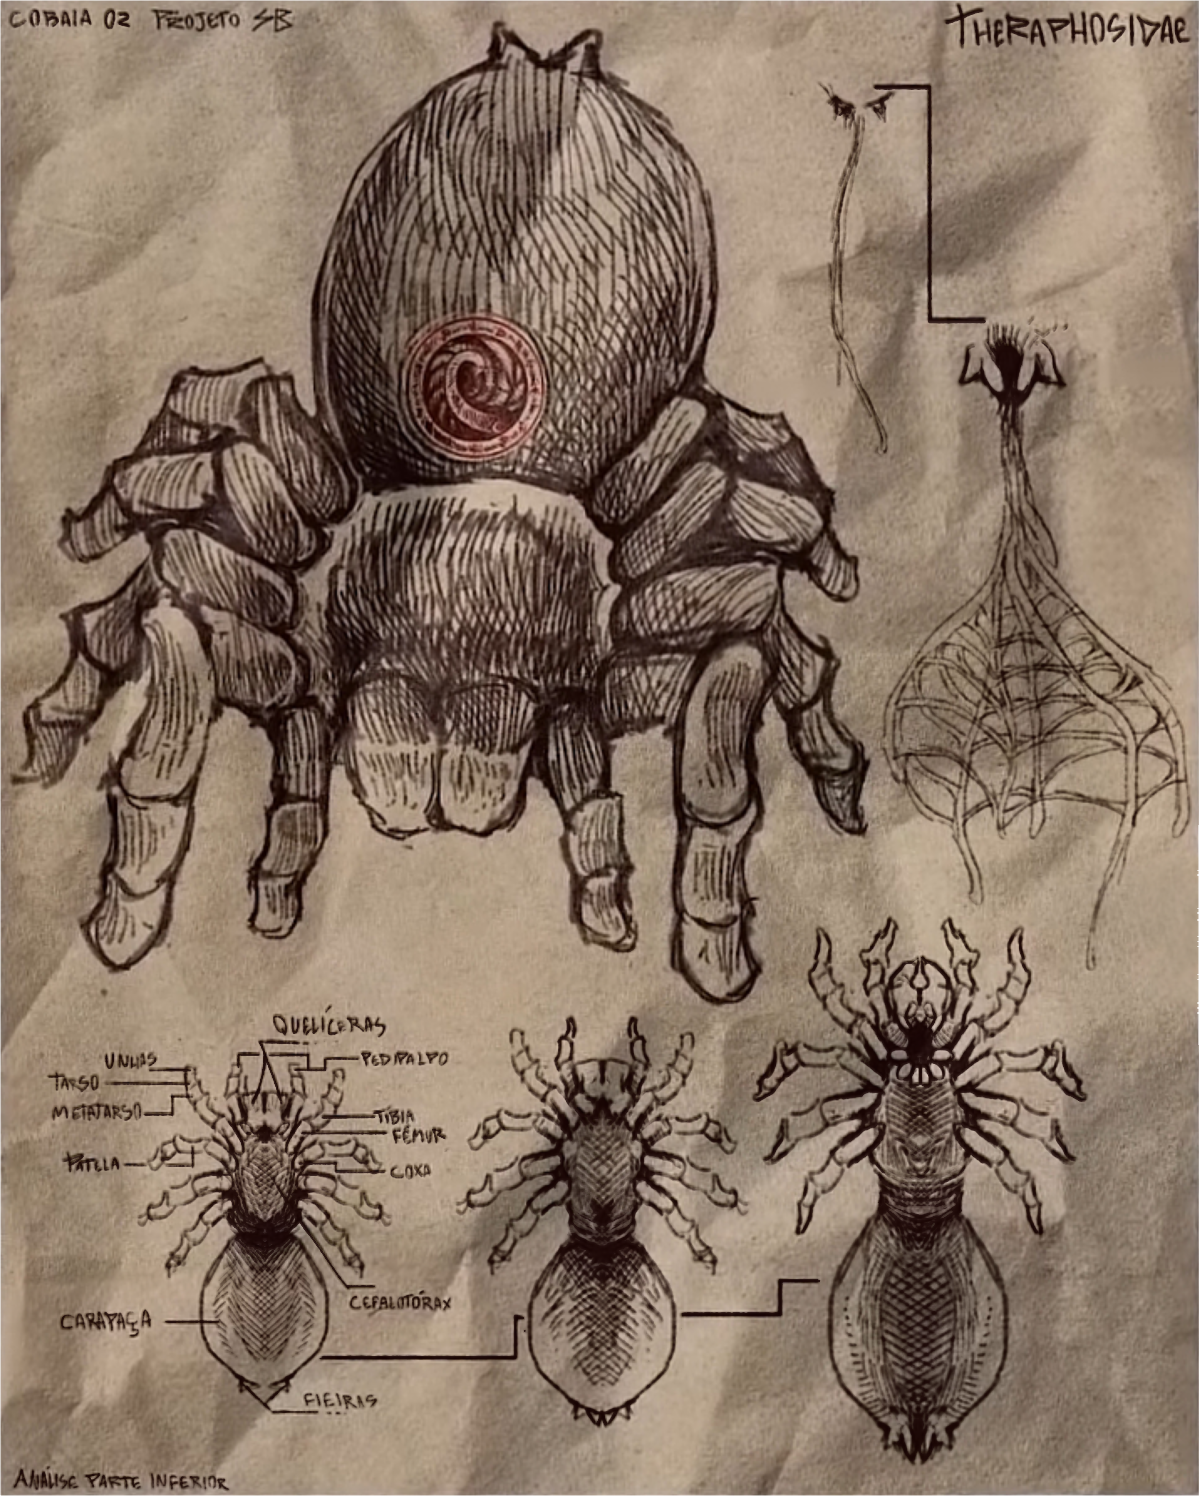 COBAIA 02 PROJETO SB
THERAPHOSIDAE
QUELÍCERAS
UNHAS
PEDIPALPO
TARSO
METATARSO
TÍBIA
FÊMUR
PATELA
COXA
CEFALOTÓRAX
CARAPAÇA
FIEIRAS
ANÁLISE PARTE INFERIOR